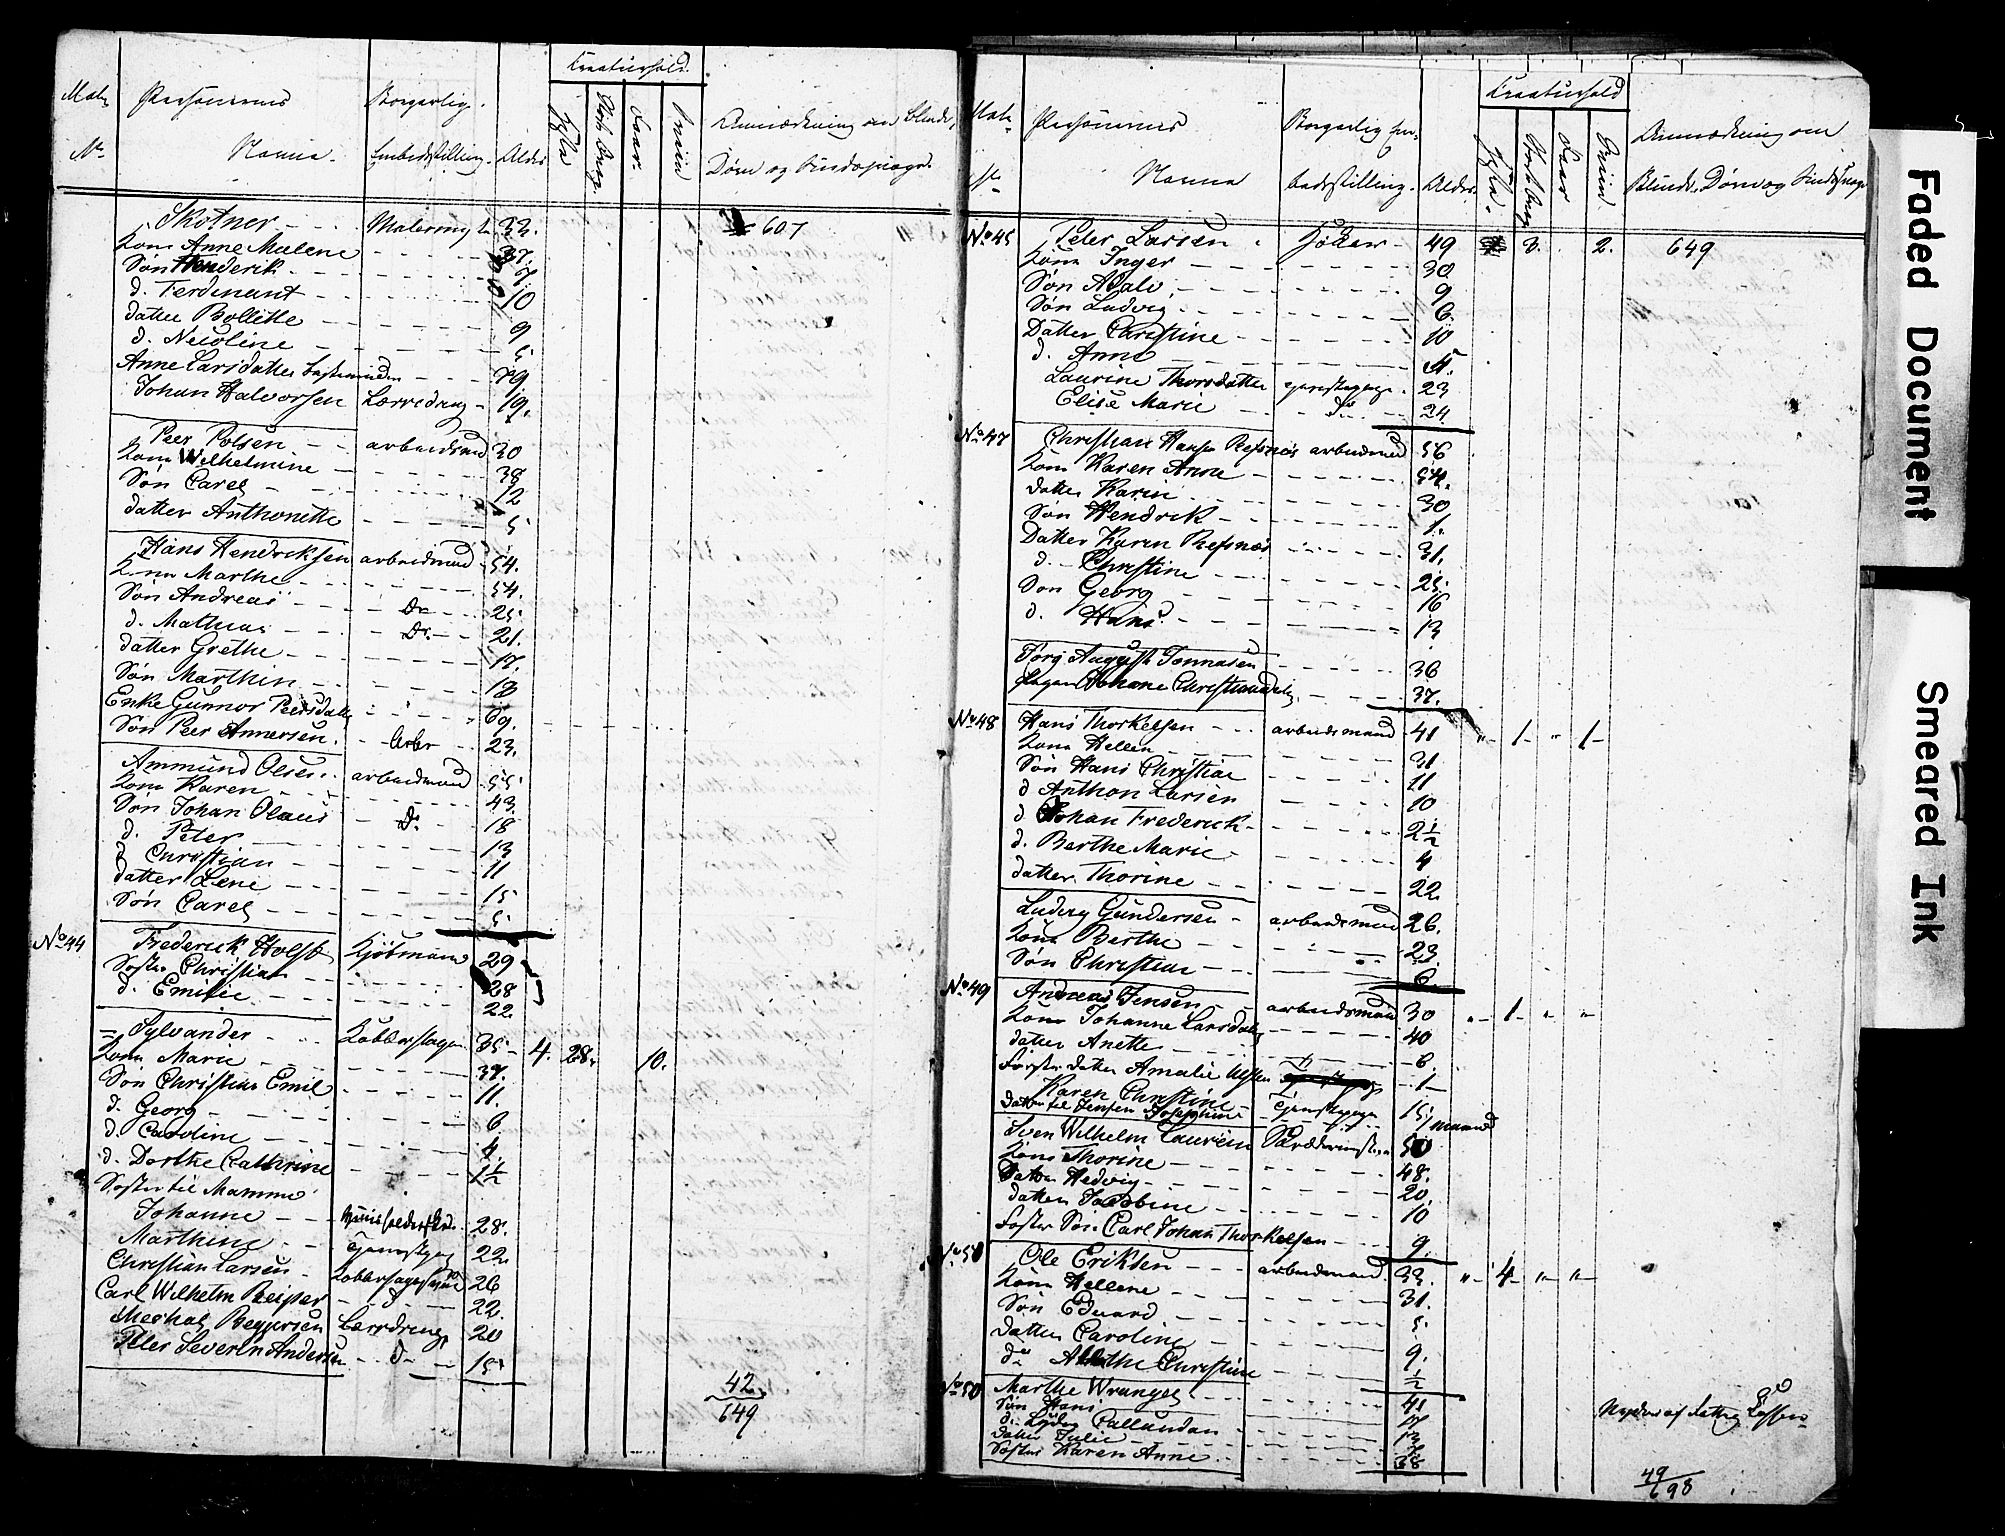 Matr Personernes Borgerlig
No Navne. Embedstilling. Alder
Creaturhold.
Heste
Faar.
Sviin
Anmærkning om Blinde,
Døve og
Skøtner - - - 33.
Kone Anne Malene - - - 37.
Søn Henderik - - - 7
d. Ferdinant - - - 10
datter Bollette - - - 9
d. Nicoline - - - 5
Anne Larsdatter - - - 79.
Johan Halvorsen Lærredreng - 19.
607
Peer Polsen - - arbeidsmd 30
Kone Wilhelmine - - - 38
Søn Carel - - - 12
datter Anthonette - - - 5
Hans Hendriksen arbeidmand 54.
Kone Marthe - - - 54.
Søn Andreas - - Do - 25
d. Mathias - - Do - 21.
datter Grethe - - - 17.
Søn Marthin - - - 18
Enke Gunnor Peersdatter 69.
Søn Peer Annersen. - Arbr - 23.
Ammund Olsen. arbeidmand 55
Kone Karen - - - 43.
Søn Johan Olaus - Do - 18
d. Peter - - - 13
d. Christian - - - 11
datter Lene - - - 15
Søn Carel - - - 5
No 44 Frederick Holst Kjøbmand 29
Søster Christian - - - 28
d. Emilie - - - 22.
= Sylvander - - Kobberslager 35 - 4. 28. 10.
Kone Marie - - - 37.
Søn Christian Emil - - - 11.
d. Georg - - - 6
d. Caroline - - - 4.
d. Dorthe Cathrine - - - 1½
Søster til Manden
Johanne - - 28.
Marthine - - 22
Christian Larsen - 26
Carl Wilhelm - d - 22.
Lærredreng 20
Peter Severin Andersen - d - 15
42
649
Matr
No
Personernes
Navne
Borgerlig Em-
bedsstilling. Alder
Creaturhold
Heste.
Faar
Sviin
Anmærkning om
Blinde, Døve og
No 45 Peter Larsen - 49 3. 2. 649
Kone Inger - - - 30
Søn Adale - - - 9
Søn Ludvig - - - 6.
Datter Christine - - - 10
d. Anne - - - 4.
Laurine Thorsdatter 23
Elise Marie - - Do - 24.
No 47 Christian Hansen Refsnæs arbeidmd 56
Kone Karen Anne - - - 54.
datter Karin - - - 30
Søn Hendrik - - - 1.
Datter Karen Refsnæs - - - 31.
d. - Christine - - - 25.
Søn Georg - - - 16
d. Hans - - - 13
Jørg August Tonnasen - - - 36
Johane - - - 37.
No 48 Hans Thorkelsen - - arbeidsmand 41 " - 1 - " 1 -
Kone Hellen - - - 31
Søn Hans Christian - - - 11
d Anthon Larsen - - - 10
d Johan Frederick - - - 2½
d. Berthe Marie - - - 4
datter. Thorine - - - 22
Ludvig Gundersen - arbeidsmand 26.
Kone Berthe - - - 23.
Søn Christian - - - 6.
No 49 Andreas Jensen - arbeidsmand 30 " - 1 - " - " -
Kone Johanne Larsdatter - - - 40
datter Anette - - - 6.
Foster datter Amalie Ulsten - 1 -
Karen Christine Tjenestepige 15
datter til Jensen Josephine - - - 1 maaned
Sven Wilhelm Laurin 50
Kone Thorine - - - 48.
Datter Hedvig - - - 20.
datter Jacobine - - - 10
Foster Søn Carl Johan Thorkelsen - - 9.
No 50 Ole Eriksen - - - arbeidsmand. 33. " - 4 - " - " -
Kone Hellene - - - 31.
Søn Eduard - - - 5.
datter Caroline - - - 9.
do Christine - - - ½
No 50 Marthe Wrangel - - - 41
Søn Hans - - - 17
d. Pallundan - - - 13
datter Julie - - -
Søster Karen Anne - - - 38
Nyder af Fattig Kassen
49
698
Faded Document
Smeared Ink